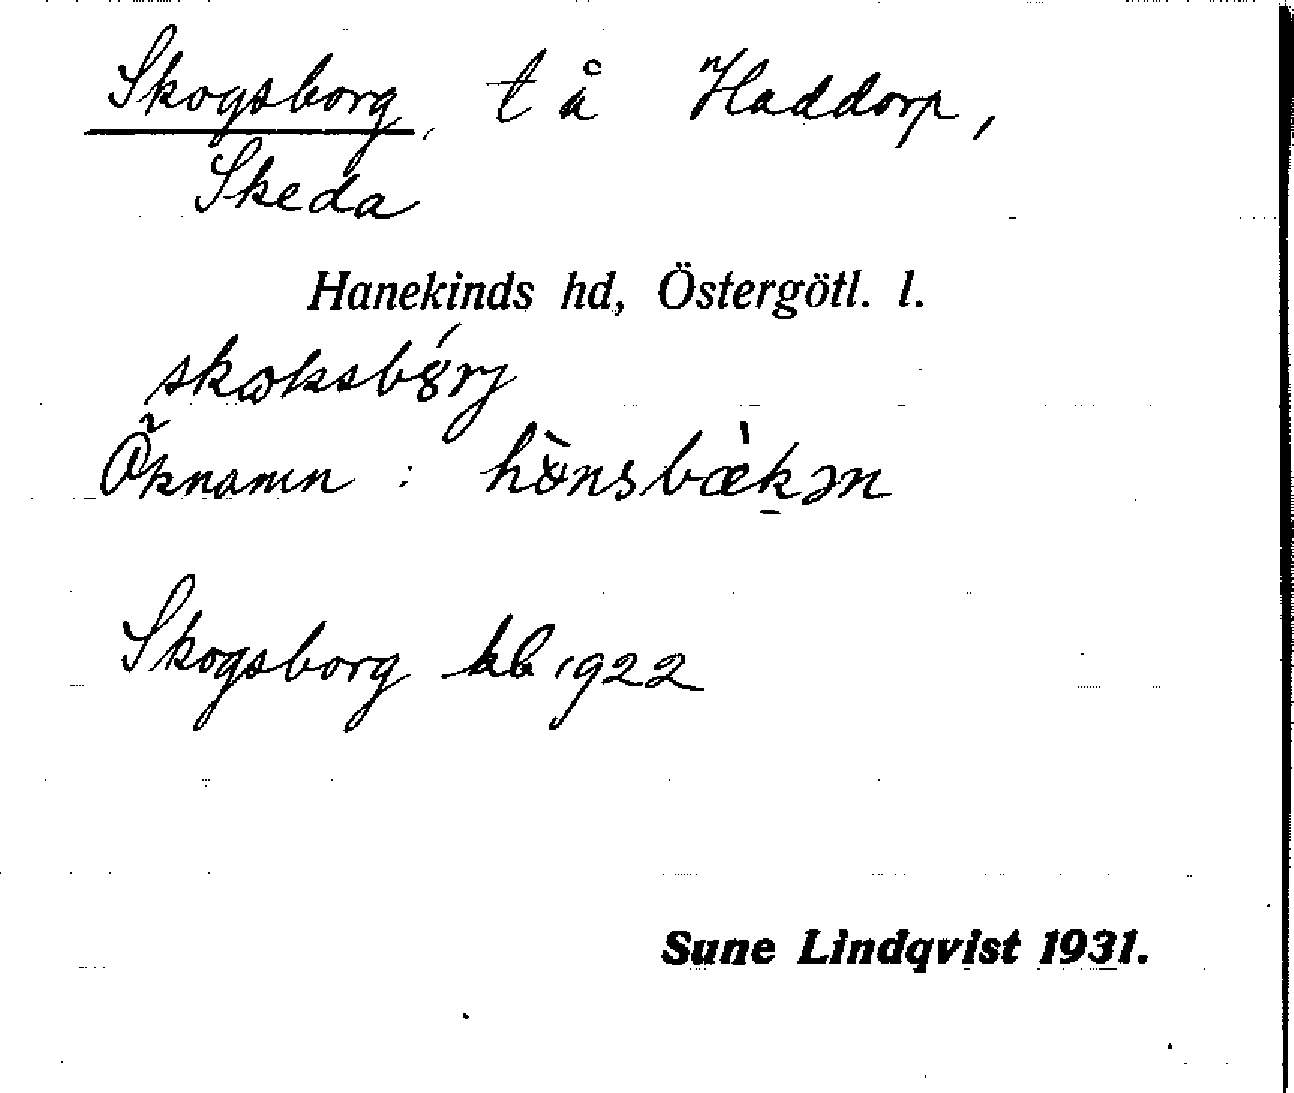 Skogsborg, t å Haddorp,
Skeda
Hanekinds hd, Östergötl. l.
skωksbȣ́rj
Öknamn : hö̀nsbæ̀k̠ən
Skogsborg kb 1922
Sune Lindqvist 1931.